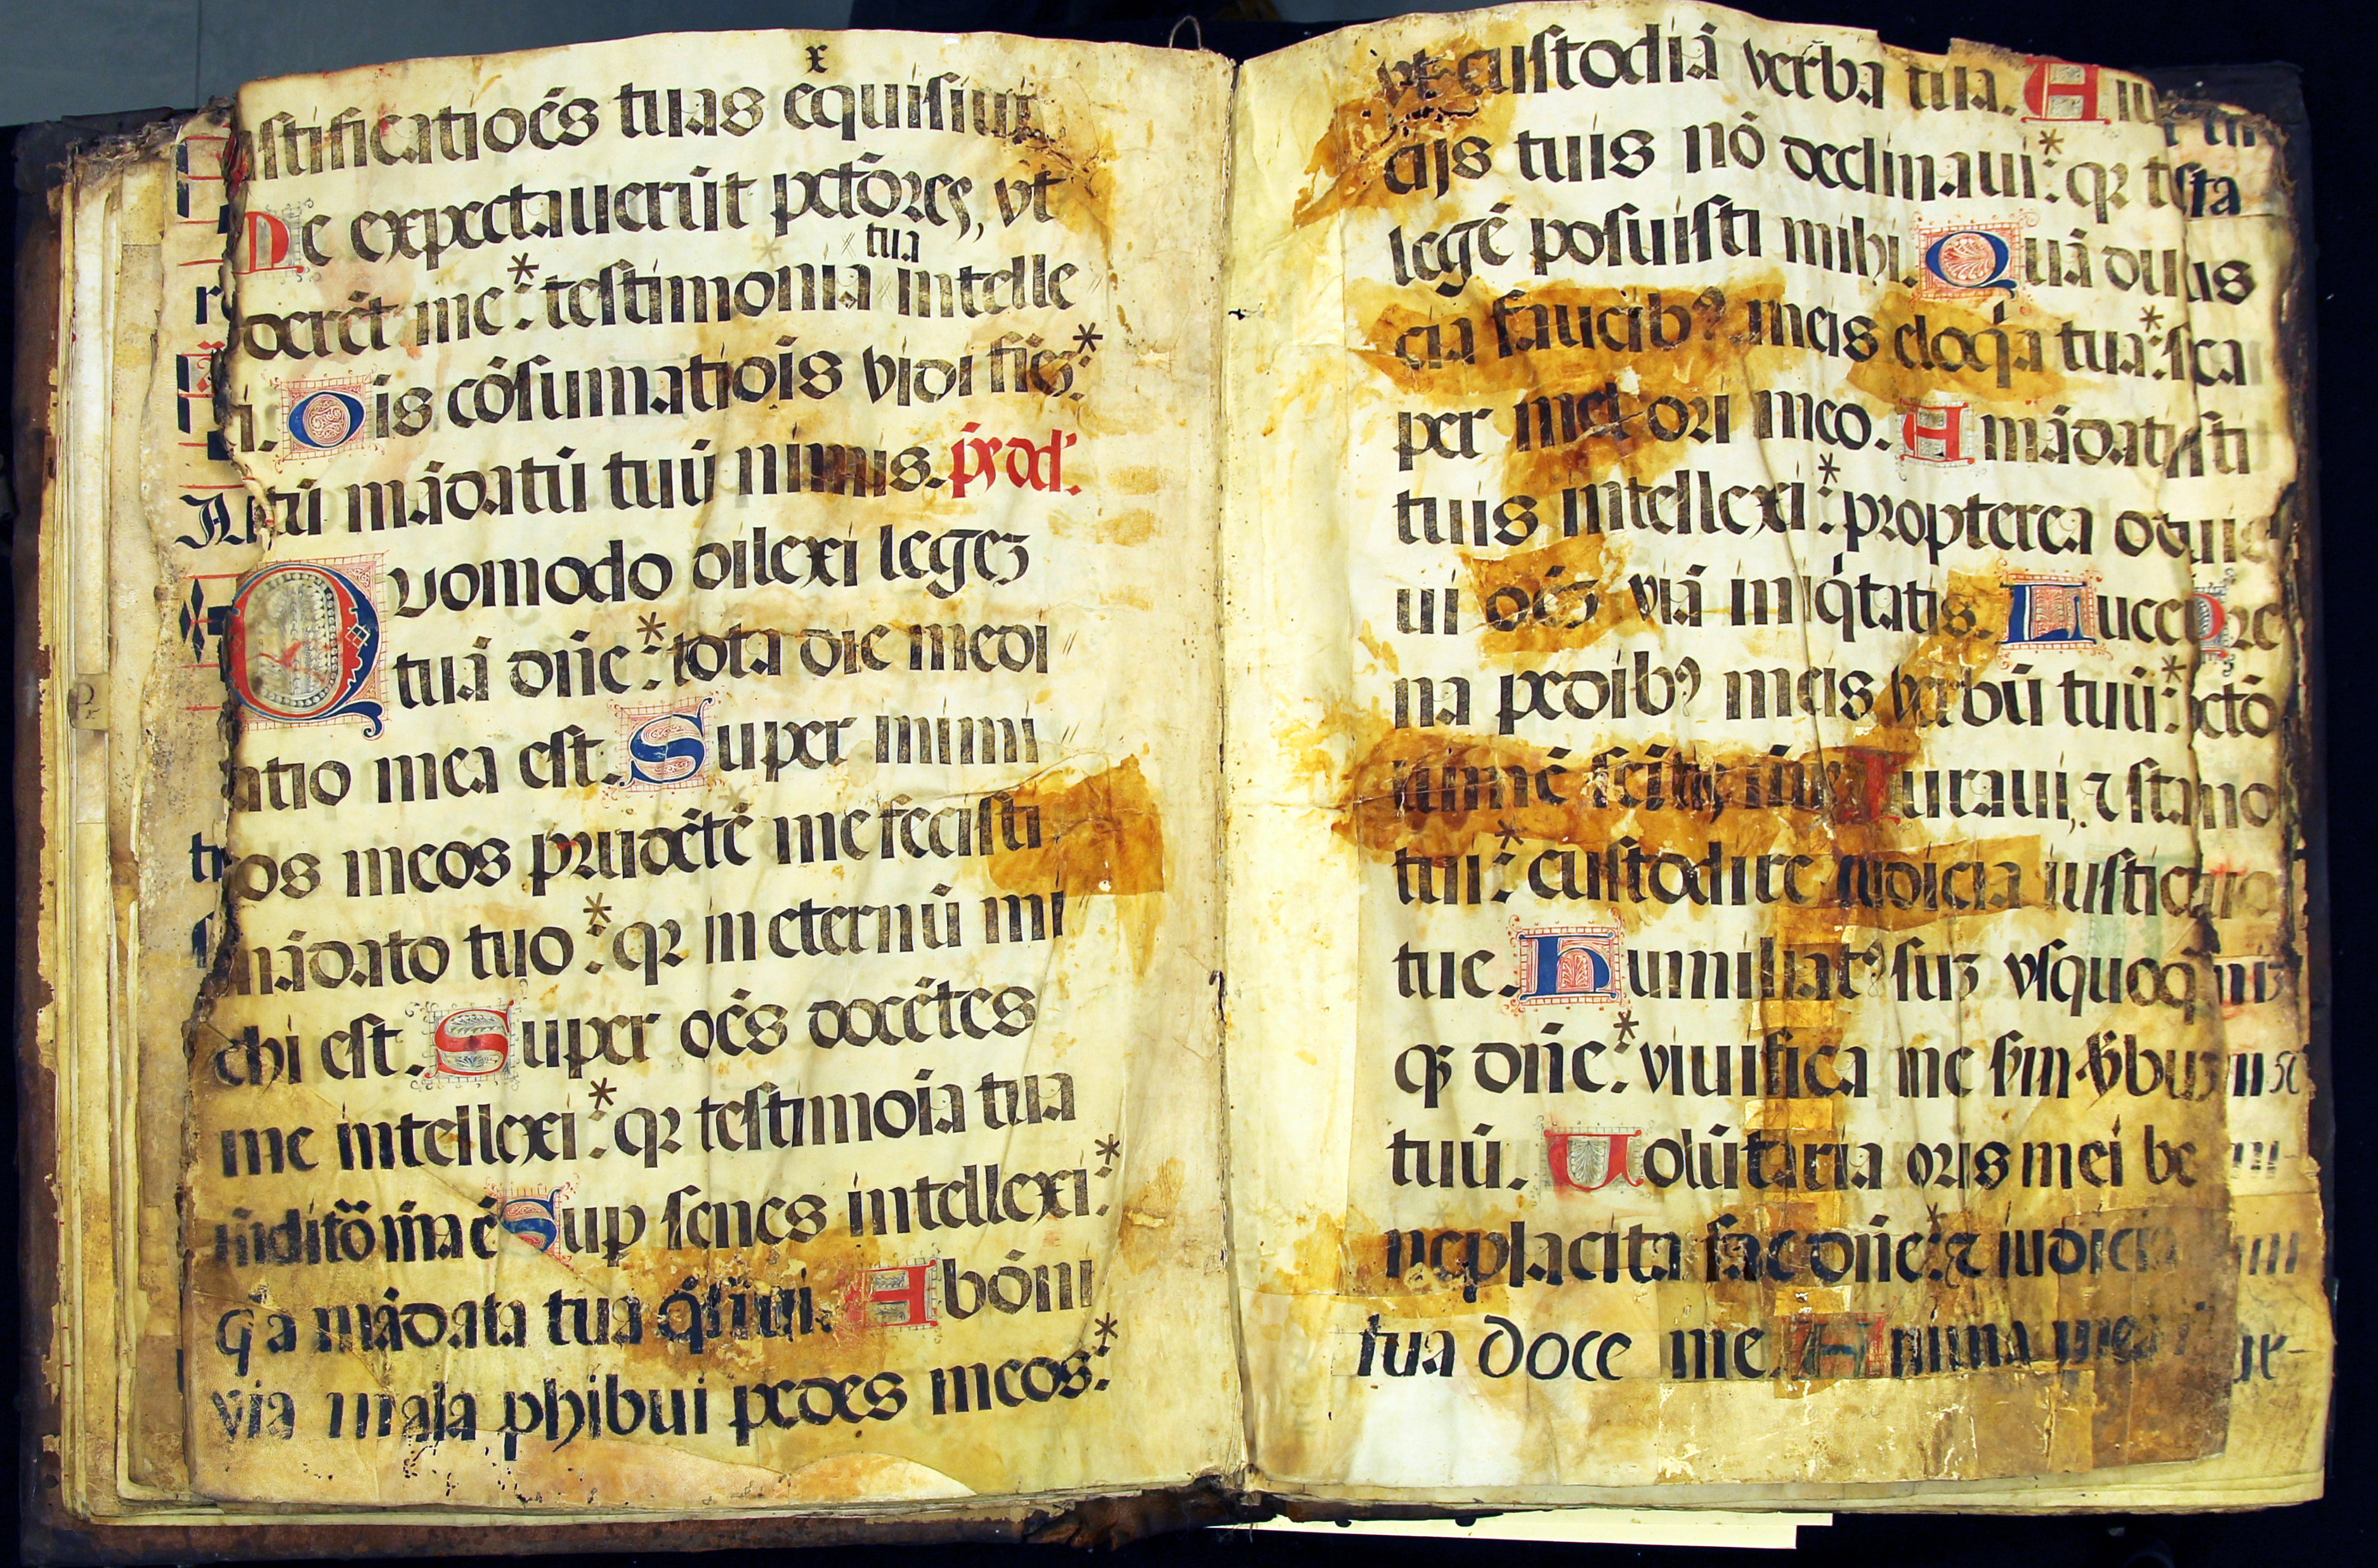 x
stificatioēs tuas exquisiui
De expectauerūt pctōres, vt
tua
derēt me: * testimonia intelle
xi. Ois cōsumatiois vidi finē: *
latū mādatū tuū nimis. psal.
Quomodo dilexi legez
tuā dñe: * tota die medi
atio mea est. Super inimi
cos meos prudētē me fecisti
mādato tuo: * qr in eternū mi
chi est. Super oēs docētes
me intellexi: * qr testimoia tua
meditō mea ē Sup senes intellexi: *
qa mādata tua qsiui. A b ōni
via mala phibui pedes meos: *
vt custodiā verba tua. A iu
cijs tuis nō declinaui: * qr tu
legē posuisti mihi. Quā dul
cia faucibꝰ meis eloqa tua: * su
per mel ori meo. A mādatis
tuis intellexi: * propterea odi
ui oēs viā iniqtatis. Lucer
na pedibꝰ meis verbū tuū: * et
lumē semitis meis Iuraui, ⁊ sta
tui: * custodire iudicia iusticie
tue. Humiliatꝰ suz vsquoq
qꝫ dñe: * viuifica me sm vbuz
tuū. Uolūtaria oris mei be
neplacita fac dñe: * ⁊ iudicia
tua doce me. Anima mea